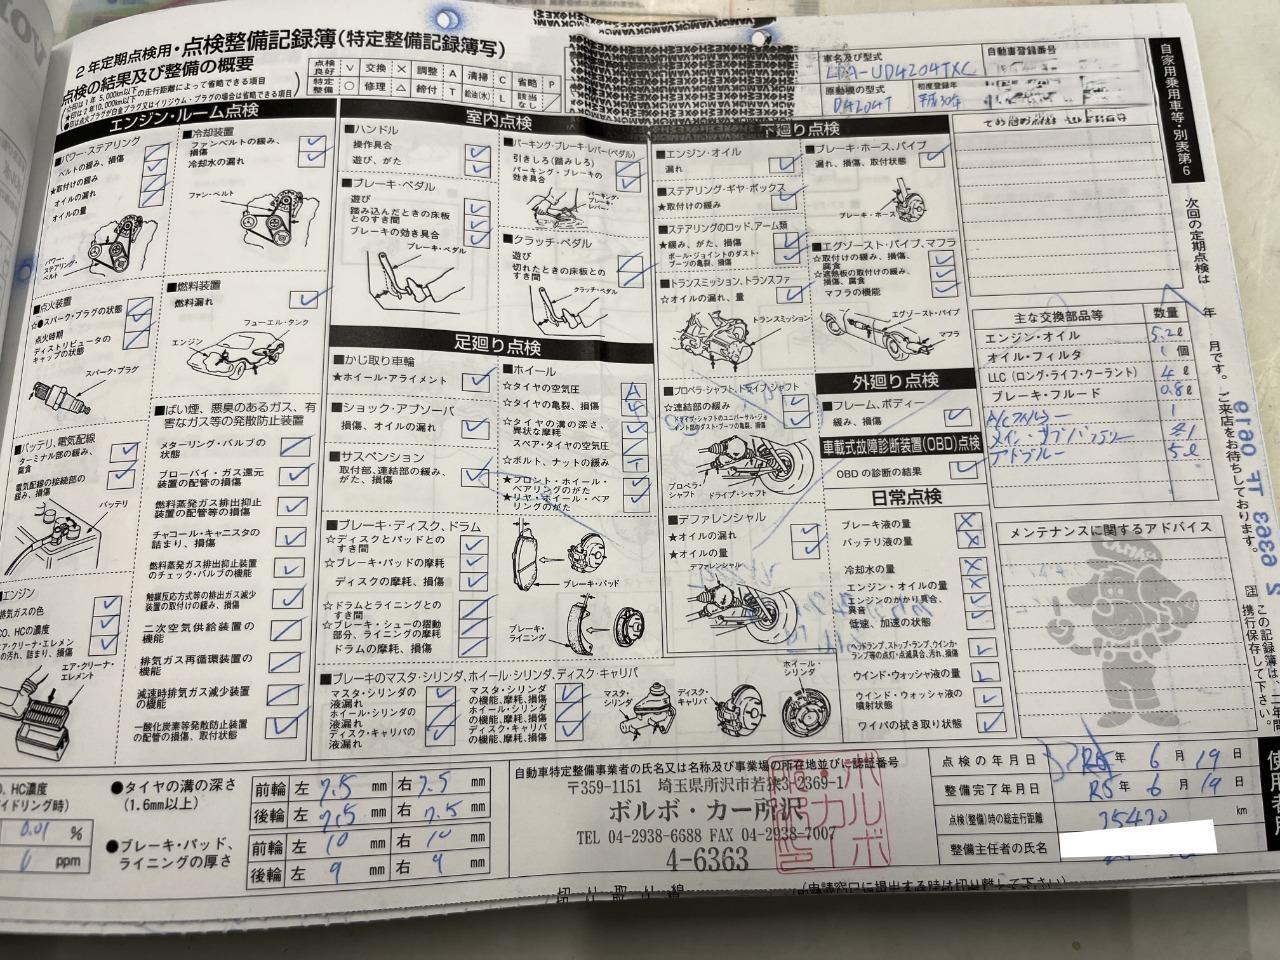 2年定期点検用・点検整備記録簿(特定整備記録簿写)
点検の結果及び整備の概要
点検良好 V 交換 X 調整 A 清掃 C 省略 P
特定整備 ○ 修理 △ 締付 T 給油(水) L 該当なし /
車名及び型式
LDA-UD4204TXC
自動車登録番号
原動機の型式
D4204T
初度登録年
平成30年
自家用乗用車等・別表第6
エンジン・ルーム点検
■パワー・ステアリング
ベルトの緩み、損傷
★取付けの緩み
オイルの漏れ
オイルの量
パワー・ステアリング・ベルト
■冷却装置
ファンベルトの緩み、損傷
冷却水の漏れ
ファン・ベルト
■点火装置
☆●スパーク・プラグの状態
点火時期
ディストリビュータのキャップの状態
スパーク・プラグ
■燃料装置
燃料漏れ
フューエル・タンク
エンジン
■バッテリ、電気配線
ターミナル部の緩み、腐食
電気配線の接続部の緩み、損傷
バッテリ
■ばい煙、悪臭のあるガス、有害なガス等の発散防止装置
メターリング・バルブの状態
ブローバイ・ガス還元装置の配管の損傷
燃料蒸発ガス排出抑止装置の配管等の損傷
チャコール・キャニスタの詰まり、損傷
燃料蒸発ガス排出抑止装置のチェック・バルブの機能
触媒反応方式等の排出ガス減少装置の取付けの緩み、損傷
二次空気供給装置の機能
排気ガス再循環装置の機能
減速時排気ガス減少装置の機能
一酸化炭素等発散防止装置の配管の損傷、取付状態
■エンジン
排気ガスの色
CO、HCの濃度
エア・クリーナ・エレメントの汚れ、詰まり、損傷
エア・クリーナ・エレメント
室内点検
■ハンドル
操作具合
遊び、がた
■ブレーキ・ペダル
遊び
踏み込んだときの床板とのすき間
ブレーキの効き具合
ブレーキ・ペダル
■パーキング・ブレーキ・レバー(ペダル)
引きしろ(踏みしろ)
パーキング・ブレーキの効き具合
パーキング・ブレーキ・レバー
■クラッチ・ペダル
遊び
切れたときの床板とのすき間
クラッチ・ペダル
足廻り点検
■かじ取り車輪
★ホイール・アライメント
■ショック・アブソーバ
損傷、オイルの漏れ
■サスペンション
取付部、連結部の緩み、がた、損傷
■ホイール
☆タイヤの空気圧
☆タイヤの亀裂、損傷
☆タイヤの溝の深さ、異状な摩耗
スペア・タイヤの空気圧
☆ボルト、ナットの緩み
★フロント・ホイール・ベアリングのがた
★リヤ・ホイール・ベアリングのがた
■ブレーキ・ディスク、ドラム
☆ディスクとパッドとのすき間
☆ブレーキ・パッドの摩耗
ディスクの摩耗、損傷
☆ドラムとライニングとのすき間
☆ブレーキ・シューの摺動部分、ライニングの摩耗
ドラムの摩耗、損傷
ブレーキ・パッド
ブレーキ・ライニング
■ブレーキのマスタ・シリンダ、ホイール・シリンダ、ディスク・キャリパ
マスタ・シリンダの液漏れ
ホイール・シリンダの液漏れ
ディスク・キャリパの液漏れ
マスタ・シリンダの機能、摩耗、損傷
ホイール・シリンダの機能、摩耗、損傷
ディスク・キャリパの機能、摩耗、損傷
マスタ・シリンダ
ディスク・キャリパ
ホイール・シリンダ
下廻り点検
■エンジン・オイル
漏れ
■ステアリング・ギヤ・ボックス
★取付けの緩み
■ステアリングのロッド、アーム類
★緩み、がた、損傷
ボール・ジョイントのダスト・ブーツの亀裂、損傷
■トランスミッション、トランスファ
☆オイルの漏れ、量
トランスミッション
■プロペラ・シャフト、ドライブ・シャフト
☆連結部の緩み
ドライブ・シャフトのユニバーサル・ジョイント部のダスト・ブーツの亀裂、損傷
プロペラ・シャフト
ドライブ・シャフト
■デファレンシャル
★オイルの漏れ
★オイルの量
デファレンシャル
■ブレーキ・ホース、パイプ
漏れ、損傷、取付状態
ブレーキ・ホース
■エグゾースト・パイプ、マフラ
☆取付けの緩み、損傷、腐食
☆遮熱板の取付けの緩み、損傷、腐食
マフラの機能
エグゾースト・パイプ
マフラ
外廻り点検
■フレーム、ボディー
緩み、損傷
車載式故障診断装置(OBD)点検
OBDの診断の結果
日常点検
ブレーキ液の量
バッテリ液の量
冷却水の量
エンジン・オイルの量
エンジンのかかり具合、異音
低速、加速の状態
ヘッドランプ、ストップ・ランプ、ウインカ・ランプ等の点灯・点滅具合、汚れ、損傷
ウインド・ウォッシャ液の量
ウインド・ウォッシャ液の噴射状態
ワイパの拭き取り状態
主な交換部品等 数量
エンジン・オイル 5.2ℓ
オイル・フィルタ 1個
LLC(ロング・ライフ・クーラント) 4ℓ
ブレーキ・フルード 0.8ℓ
A/Cフィルター 1
アドブルー 5ℓ
メンテナンスに関するアドバイス
次回の定期点検は 年 月です。ご来店をお待ちしております。
CO、HC濃度
(アイドリング時)
0.01 %
0 ppm
●タイヤの溝の深さ(1.6mm以上)
前輪 左 7.5 mm 右 7.5 mm
後輪 左 7.5 mm 右 7.5 mm
●ブレーキ・パッド、ライニングの厚さ
前輪 左 10 mm 右 10 mm
後輪 左 9 mm 右 9 mm
自動車特定整備事業者の氏名又は名称及び事業場の所在地並びに認証番号
〒359-1151 埼玉県所沢市若狭3-2369-1
ボルボ・カー所沢
TEL 04-2938-6688 FAX 04-2938-7007
4-6363
点検の年月日 R5年 6月 19日
整備完了年月日 R5年 6月 19日
点検(整備)時の総走行距離 35420 km
整備主任者の氏名
切り取り線
(申請窓口に提出する時は切り離して下さい)